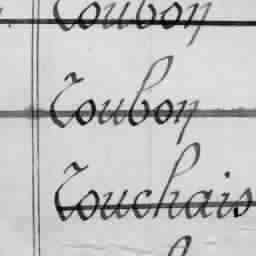 Toubon
Toubon
Touchais